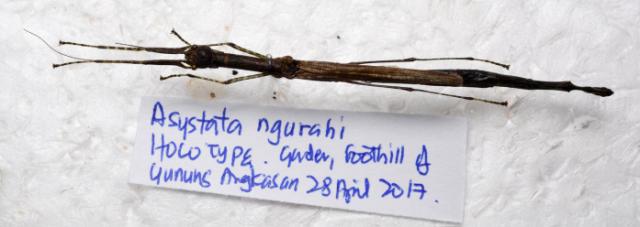 Asystata ngurahi
HOLOTYPE. Garden, foothill of
Gunung Angkasan 28 April 2017.